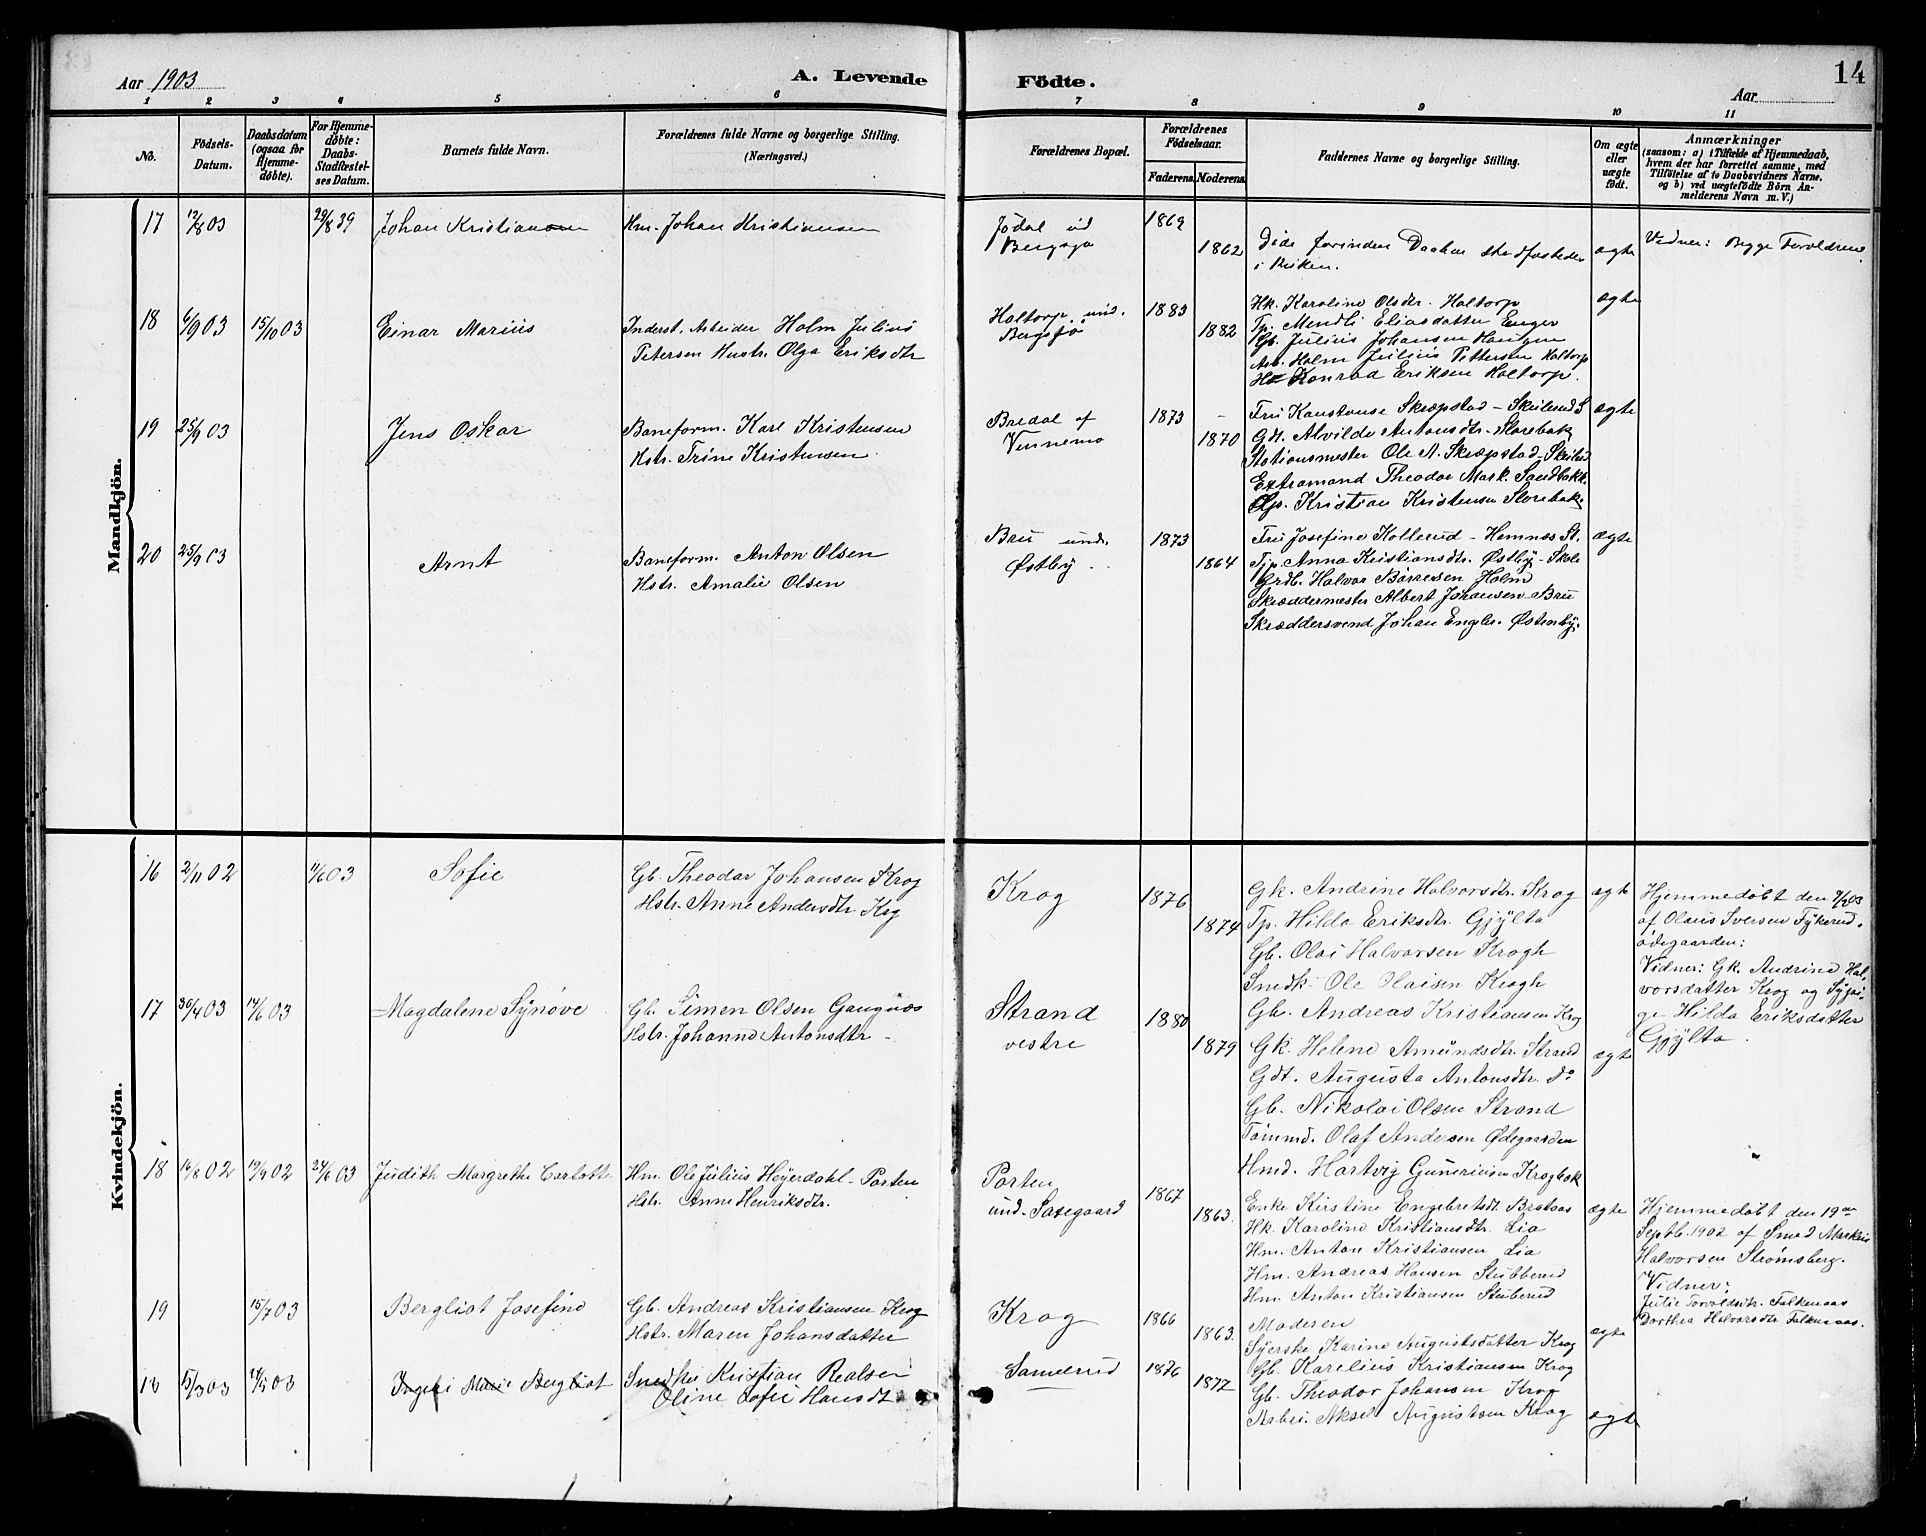 Aar 1903
A. Levende
Födte.
Aar
14
1 2 3 4 5 6 7 8 9 10 11
No.
Födsels-
Datum.
Daabsdatum
(ogsaa for
Hjemme-
döbte).
For Hjemme-
döbte:
Daabs-
Stadfæstel-
ses Datum.
Barnets fulde Navn.
Forældrenes fulde Navne og borgerlige Stilling.
(Næringsvei.)
Forældrenes Bopæl.
Forældrenes
Födselsaar.
Faderens
Moderens
Faddernes Navne og borgerlige Stilling.
Om ægte
eller
uægte
födt.
Anmærkninger
(saasom: a) i Tilfælde af Hjemmedaab,
hvem der har forrettet samme, med
Tilföielse af to Daabsvidners Navne,
og b) ved uægtefödte Börn An-
melderens Navn m. V.)
Mandkjön.
17 12/8 03 29/8 39 Johan Kristiansen
Hm. Johan Kristiansen
Jødal
Bergsjø
1869
1862
Døde Daaben stadfæstedes
i
ægte
Vidner: Begge Forældrene.
18 6/9 03 15/10 03 Einar Marius
Inderst, Arbeider Holm Julius
Petersen Hustr. Olga Eriksdtr
Haltorp und.
Bergsjø
1883
1882
Hk. Karoline Olsdtr. Haltorp
Tp. Mendli Eliasdatter Enger
Gb. Julius Johansen Haugen
Arb. Holm Julius Pettersen Haltorp
Konrad Eriksen Haltorp.
ægte
19 25/9 03 Jens Oskar
Baneform. Karl Kristensen
Hstr. Trine Kristensen.
Bredal af
Vennemo
1873
1870
Fru Konstanse Skræpstad - Skulerud S
Gdt. Alvilde Antonsdtr. Slorebak
Stationsmester Ole A. Skræpstad - Skulerud
Extramand Theodor Mark. Sandbakk.
Gp. Kristian Kristensen Slorebak.
ægte
20 25/9 03 Arnt
Baneform. Anton Olsen
Hstr. Amalie Olsen
Bru und.
Østby
1873
1864
Fru Josefine Kollerud - Hemnes St.
Tjp. Anna Kristiansdtr. Østby - Skole
Grdb. Halvor Børresen Holm
Skræddermester Albert Johansen - Bru
Skræddersvend Johan Engebr. Østenby.
ægte
Kvindekjön.
16 2/11 02 1/6 03 Sofie
Gb. Theodor Johansen Krog
Hstr. Anne Andersdtr Krg
Krog
1876
1874
Gk. Andrine Halvorsdtr. Krog
Tp. Hilda Eriksdtr. Gjylta
Gb. Olai Halvorsen Krogh
Snedk. Ole Olaisen Krogh
Gb. Andreas Kristiansen Krog
ægte
Hjemmedøbt den
af Olaus Iversen Tykerud.
ødegaarden:
Vidner: Gk. Andrine Hal-
vorsdatter Krog og Sypi-
ge Hilda Eriksdatter
Gjylta.
17 30/4 03 14/6 03 Magdalene Synøve
Gb. Simen Olsen Gangnæs
Hstr. Johanne Antonsdtr -
Strand
vestre
1880
1879
Gk. Helene Amundsdtr. Strand
Gdt. Augusta Antonsdtr. Do
Gb. Nikolai Olsen Strand
Tømmd. Olaf Andersen Ødegaarden
Hmd. Hartvig Gunerius Krogbak
ægte
18 16/8 02 19/9 02 24/6 03 Judith Margrethe Carlotte
Hm. Ole Julius Høyerdahl - Porten
Hstr. Anne Henriksdtr.
Porten
und. Saxegaard
1867
1863.
Enke Kirstine Engebretsdt. Brataas
Hk. Karoline Kristiansdtr. Lia
Hm. Anton Kristiansen Lia
Hm. Andreas Hansen Stubberud
Hm. Anton Kristiansen Stuberud
ægte
Hjemmedøbt den 19de
Septb. 1902 af Smed Markus
Halvorsen Strømsberg.
Vidner:
Julie Torvoldsdtr. Falkenaas
Dorthea Halvorsdtr. Falkenaas.
19 15/7 03 Bergliot Josefine
Gb. Andreas Kristiansen Krog
Hstr. Maren Johansdatter
Krog
1866
1863.
Moderen
Syerske Karine Augustsdatter Krog
Gb. Karelius Kristiansen Krog
Gb. Theodor Johansen Krog
Arbei. Aksel Augustsen Krog
ægte
Marie Bergliot
Snedker Kristian
Oline Sofie Hansdt
Samerud
1876
1877
ægte